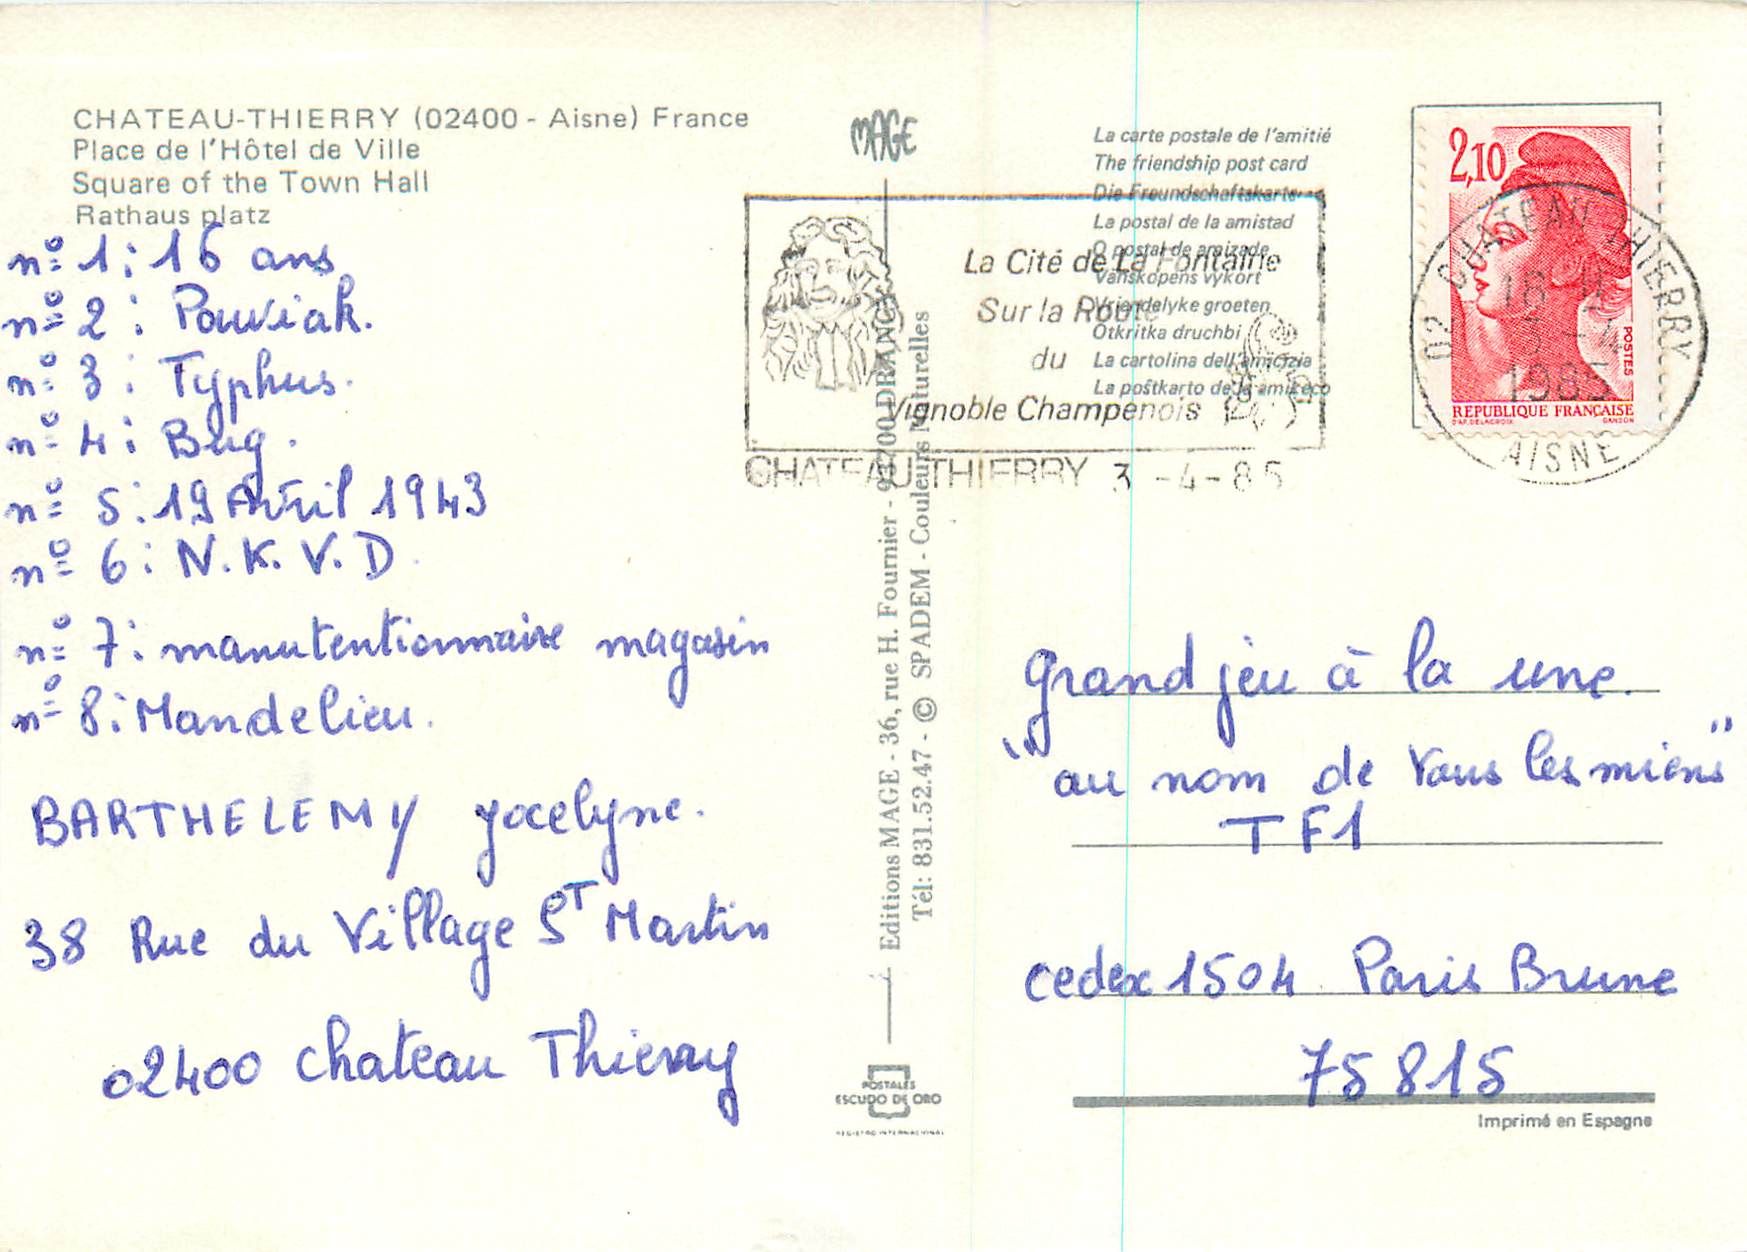 CHATEAU-THIERRY (02400 - Aisne) France
Place de l'Hôtel de Ville
Square of the Town Hall
Rathaus platz
n° 1 : 16 ans
n° 2 : Pawiak.
n° 3 : Typhus.
n° 4 : Bug.
n° 5 : 19 Avril 1943
n° 6 : N.K.V.D
n° 7 : manutentionnaire magasin
n° 8 : Mandelieu.
BARTHELEMY Jocelyne.
38 Rue du Village ST Martin
02400 Chateau Thierry
MAGE
Editions MAGE - 36, rue H. Fournier - 93700 DRANCY
Tél: 831.52.47 - © SPADEM - Couleurs Naturelles
POSTALES
ESCUDO DE ORO
REGISTRO INTERNACIONAL
La carte postale de l'amitié
The friendship post card
Die Freundschaftskarte
La postal de la amistad
O postal de amizade
Vänskapens vykort
Vriendelyke groeten
Otkritka druchbi
La cartolina dell'amicizia
La poŝtkarto de la amikeco
La Cité de La Fontaine
Sur la Route
du
Vignoble Champenois
CHATEAU THIERRY 3 -4-85
2,10
POSTES
REPUBLIQUE FRANÇAISE
D'AP. DELACROIX GANDON
02 CHATEAU THIERRY
18 H
3 -4
1985
AISNE
Grand jeu à la une.
"au nom de tous les miens"
TF1
Cedex 1504 Paris Brune
75 815
Imprimé en Espagne